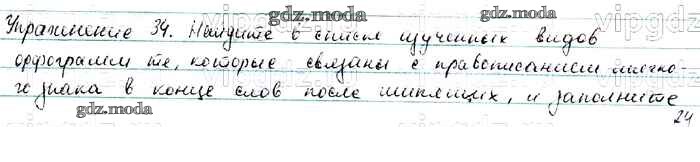 gdz.moda
Упражнение 34. Найдите в списке изученных видов
орфограмм те, которые связаны с правописанием мягко-
го знака в конце слов после шипящих, и заполните
24
gdz.moda
gdz.moda
gdz.moda
vipgdz
vipgdz